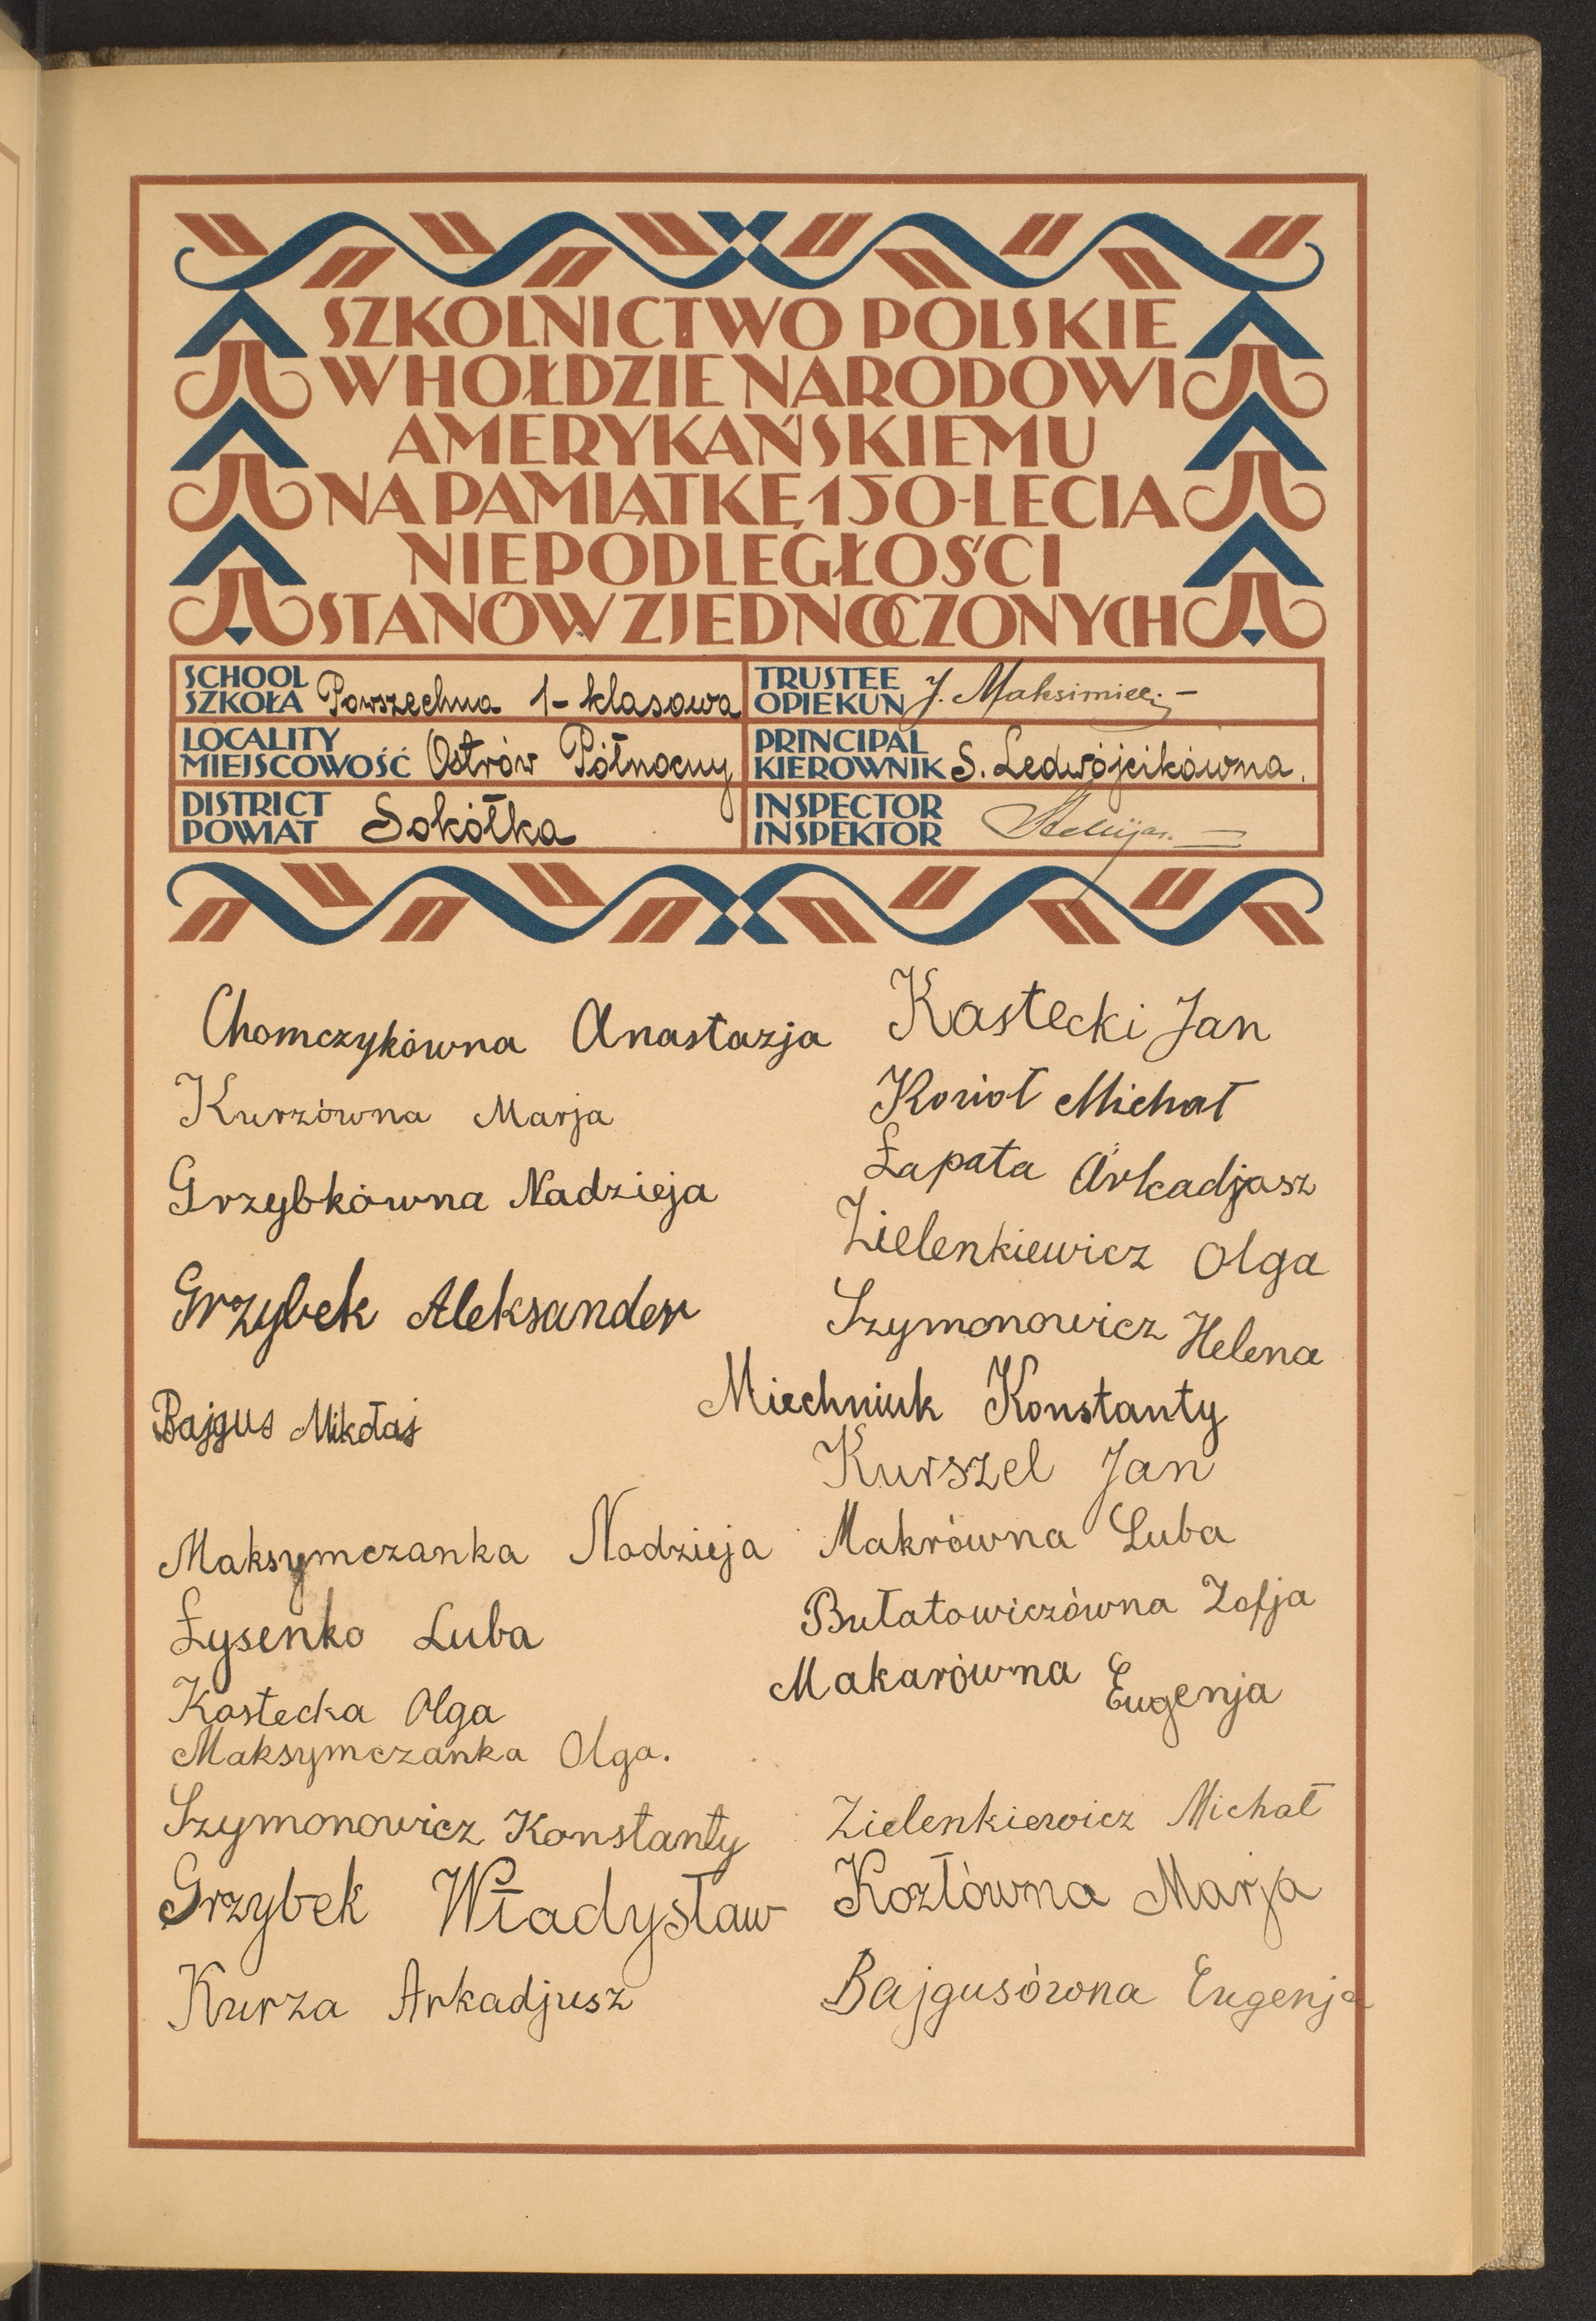 SZKOLNICTWO POLSKIE
W HOŁDZIE NARODOWI
AMERYKAŃSKIEMU
NA PAMIĄTKĘ 150-LECIA
NIEPODLEGŁOŚCI
STANÓW ZJEDNOCZONYCH
SCHOOL
SZKOŁA Powszechna 1-klasowa
TRUSTEE
OPIEKUN J. Maksimiec
LOCALITY
MIEJSCOWOŚĆ Ostrów Północny
PRINCIPAL
KIEROWNIK S. Ledwójcikówna.
DISTRICT
POWIAT Sokółka
INSPECTOR
INSPEKTOR
Chomczykówna Anastazja
Kurzówna Marja
Grzybkówna Nadzieja
Grzybek Aleksander
Bajgus Mikołaj
Maksymczanka Nadzieja
Łysenko Luba
Kostecka Olga
Maksymczanka Olga.
Szymonowicz Konstanty
Grzybek Władysław
Kurza Arkadjusz
Kastecki Jan
Kozioł Michał
Łapata Arkadjasz
Zielenkiewicz Olga
Szymonowicz Helena
Miechniuk Konstanty
Kurszel Jan
Makrówna Luba
Bułatowiczówna Zofja
Makarówna Eugenja
Zielenkiewicz Michał
Kozłówna Marja
Bajgusówna Eugenja